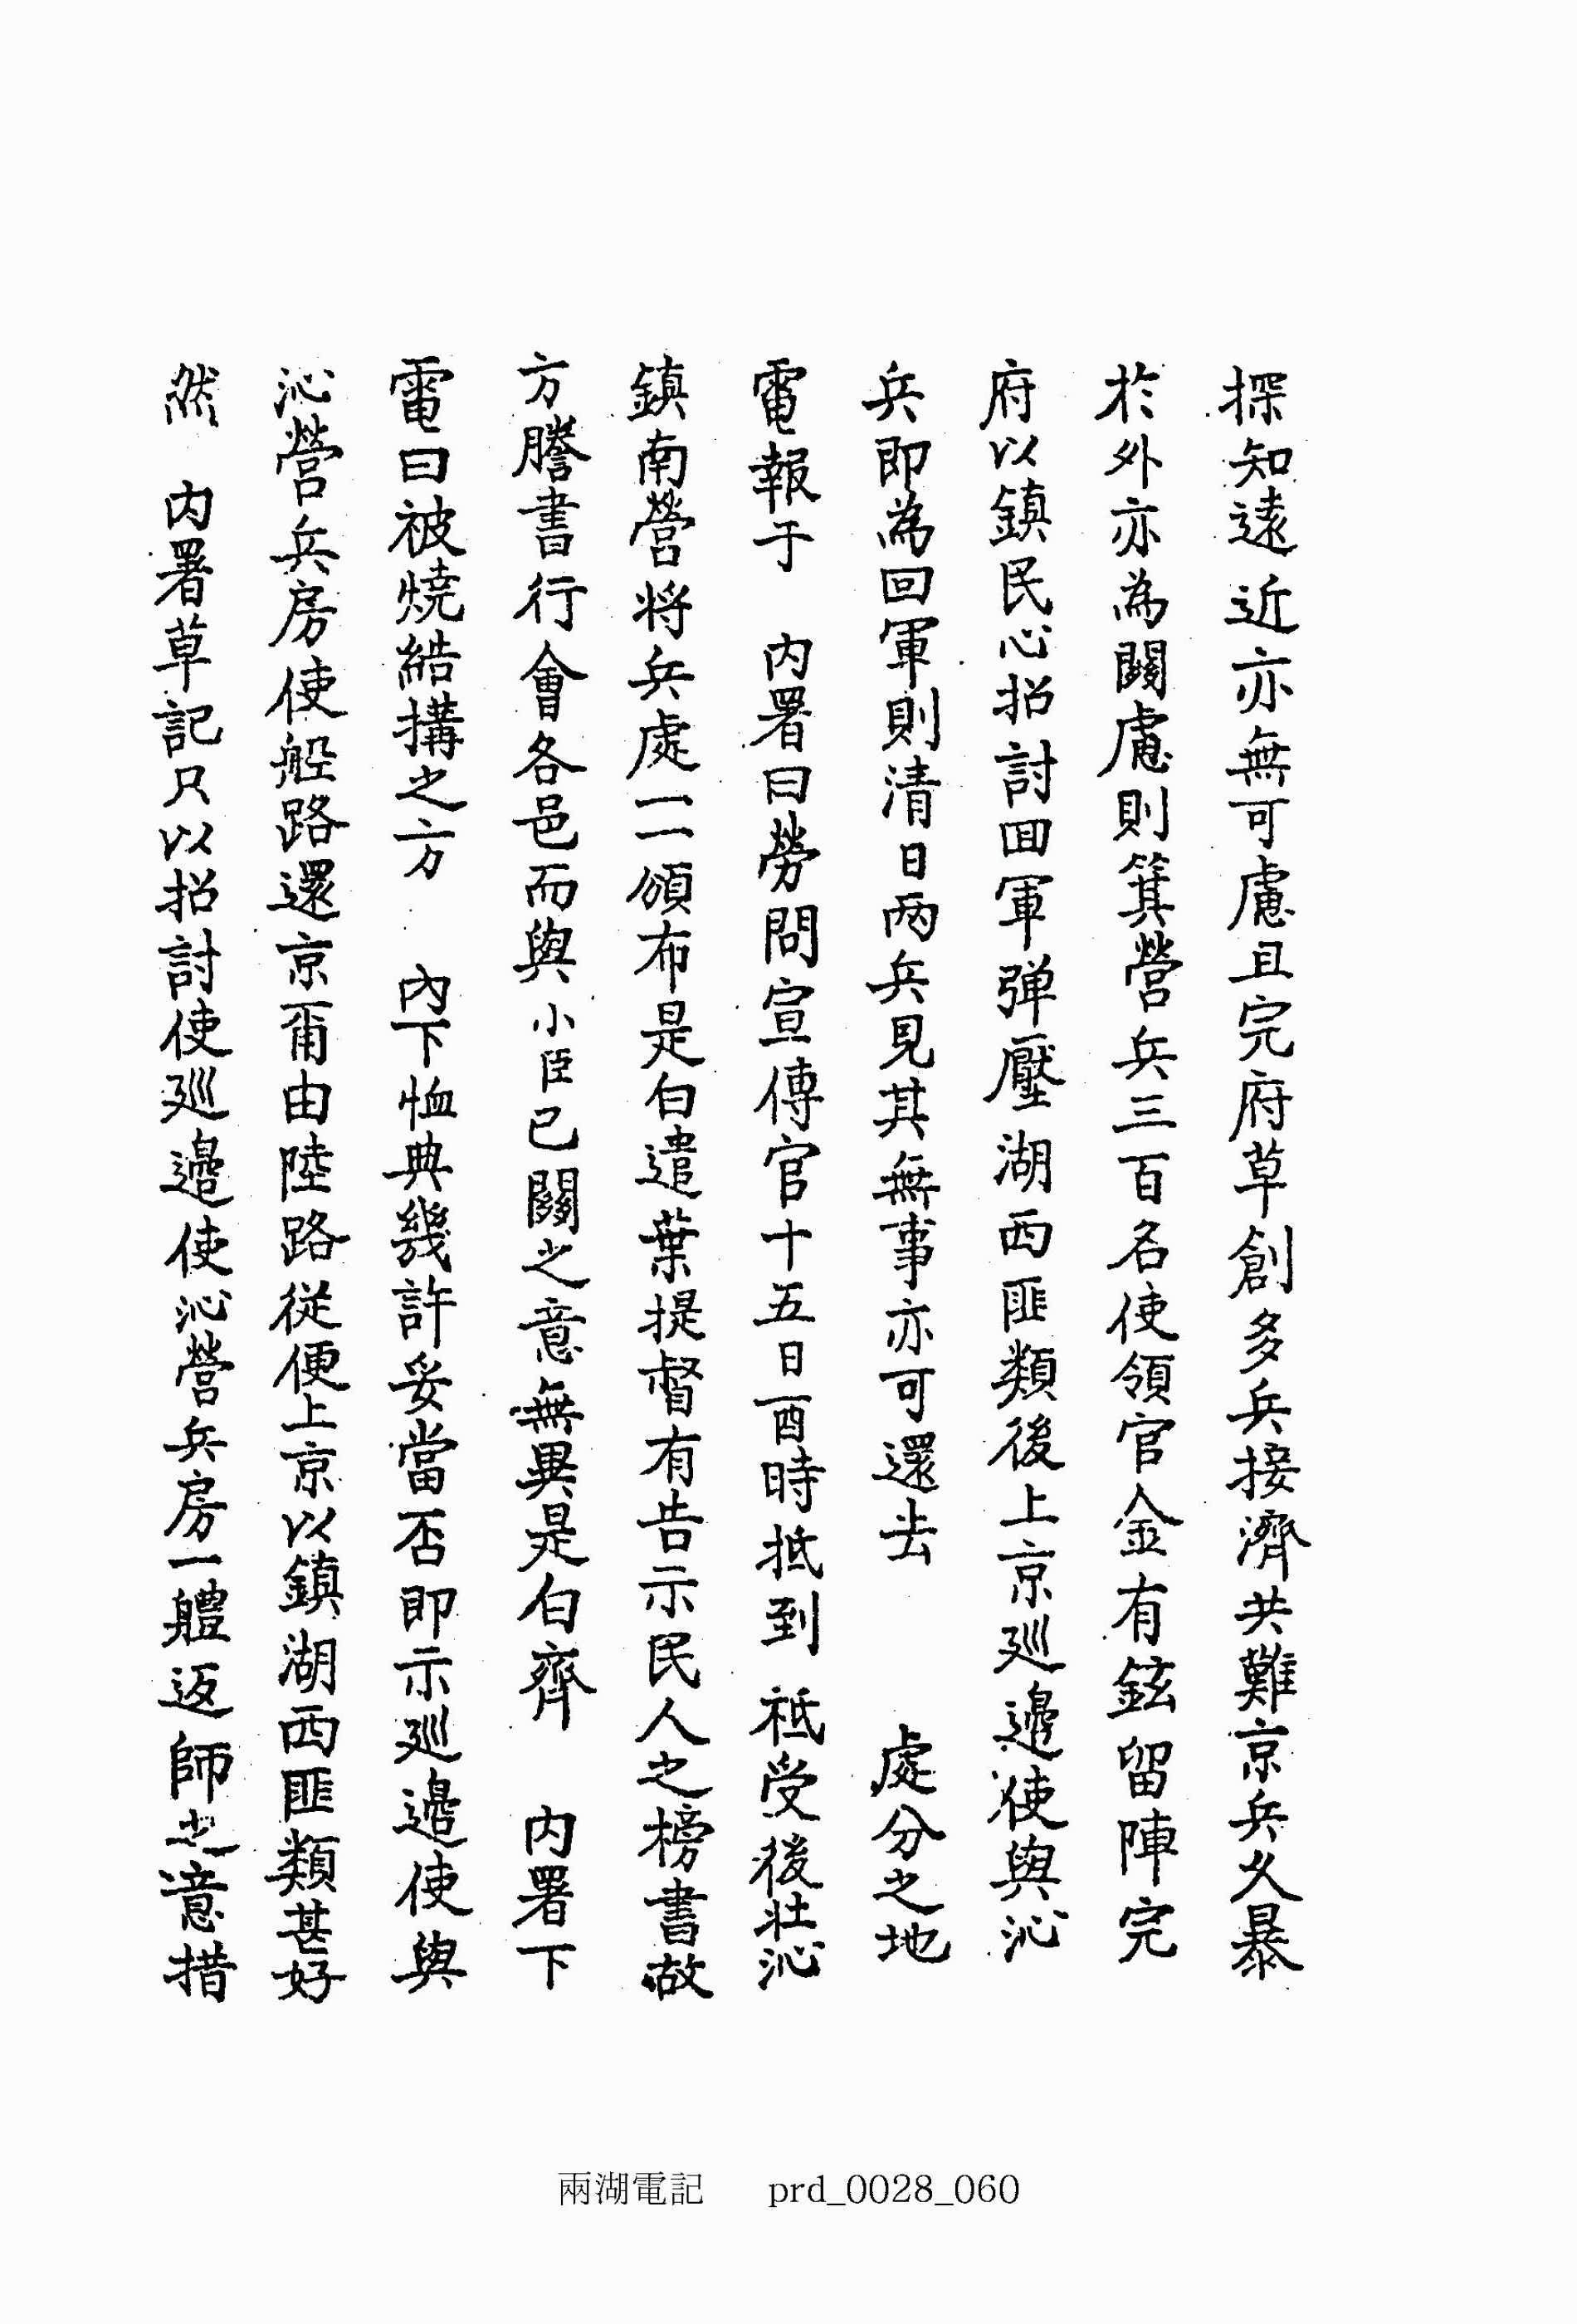 探知遠近亦無可慮且完府草創多兵接濟共難京兵久暴
於外亦為闕慮則箕營兵三百名使領官金有鉉留陣完
府以鎮民心招討回軍弹壓湖西匪類後上京廵邊使與沁
兵即為回軍則清日兩兵見其無事亦可還去　處分之地
電報于　內署曰勞問宣傳官十五日酉時抵到祗受後壯沁
鎮南營將兵處一一頒布是白遣葉提督有告示民人之榜書故
方謄書行會各邑而與小臣已闕之意無異是白齊　內署下
電曰被燒結搆之方　內下恤典幾許妥當否即示廵邊使與
沁營兵房使船路還京甭由陸路從便上京以鎮湖西匪類甚好
然　內署草記只以招討使廵邊使沁營兵房一軆返師之意措
兩湖電記 prd_0028_060